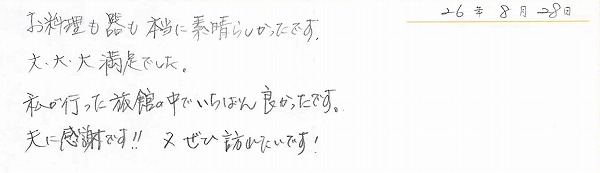 26年 8月 28日
お料理も器も本当に素晴らしかったです。
大・大・大満足でした。
私が行った旅館の中でいちばん良かったです。
夫に感謝です!! 又ぜひ訪れたいです!